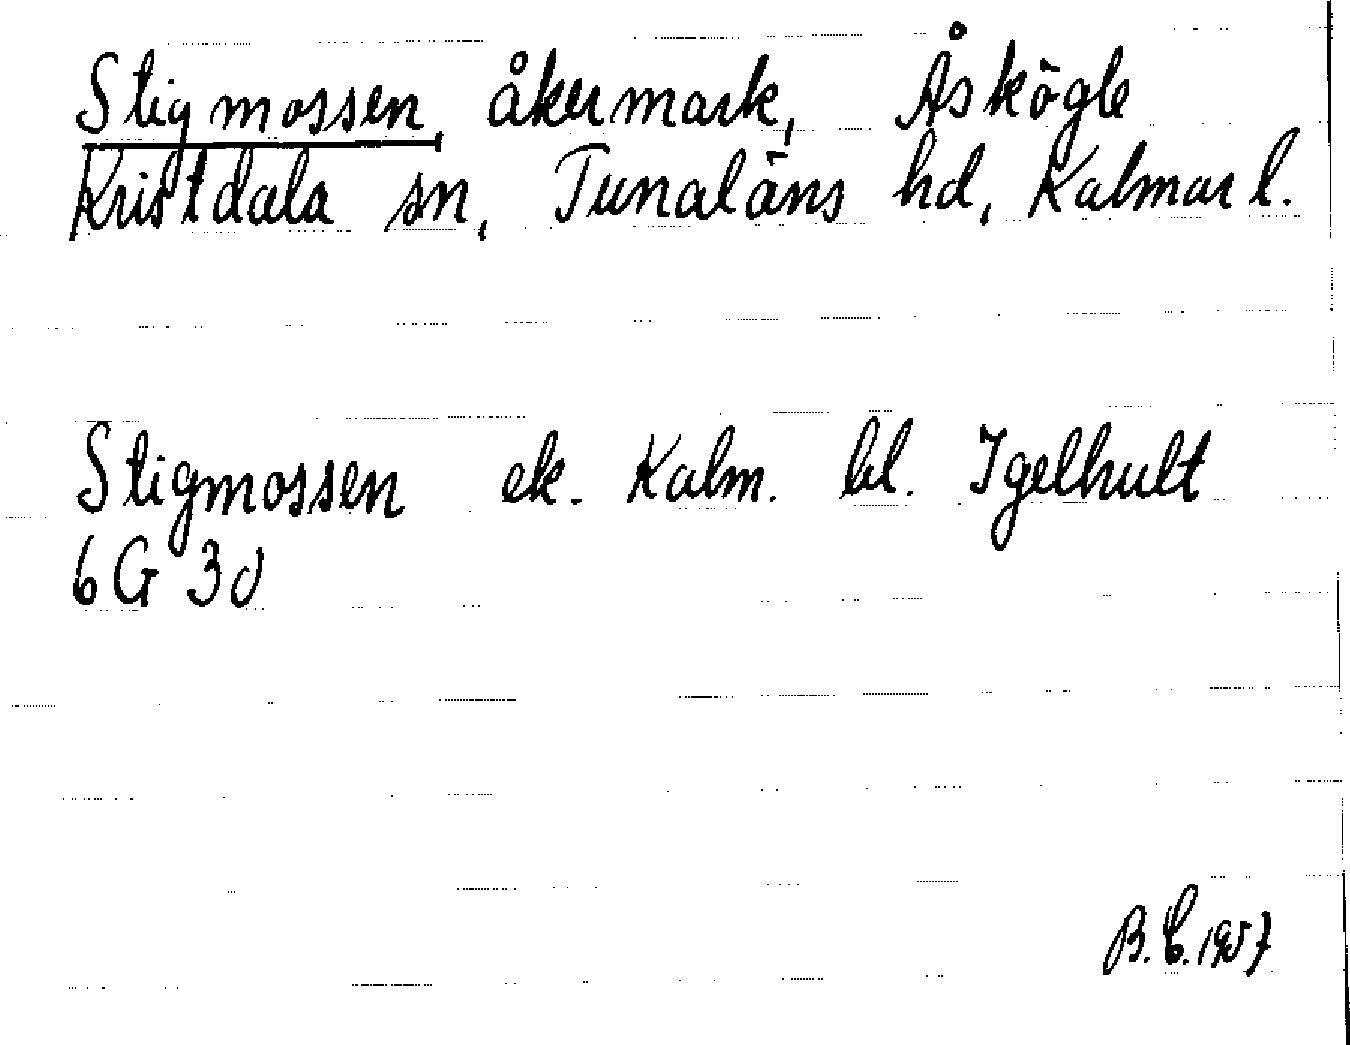 Stigmossen, åkermark, Åskögle
Kristdala sn, Tunaläns hd, Kalmar l.
Stigmossen ek. Kalm. bl. Igelhult
6 G 3d
B.C. 1957